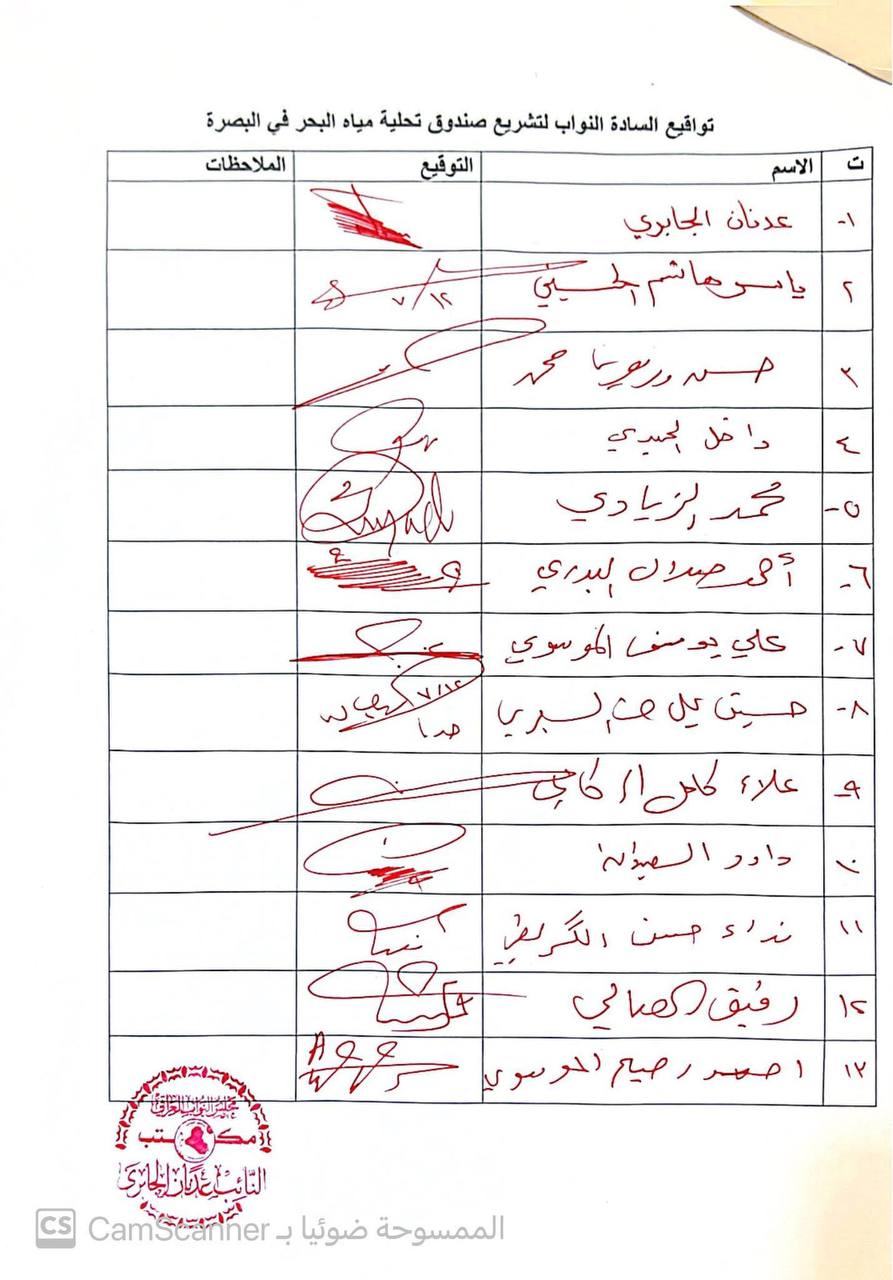 تواقيع السادة النواب لتشريع صندوق تحلية مياه البحر في البصرة
ت الاسم التوقيع الملاحظات
١- عدنان الجابري
٢ ياسر هاشم الحسيني ٧/١٢
٣ حسن وريوش محمد
٤ داخل
٥- محمد الزيادي
٦- أحمد صلال البدري
٧- علي يوسف الموسوي
٨- حسين علي ٧/١٢
٩- علاء كامل الركابي
١٠ داود العيدان
١١ نداء حسن الگريطي
١٢ رفيق الصالحي
١٣ احمد رحيم الموسوي
مجلس النواب العراقي
مكتب
النائب عدنان الجابري
CS CamScanner الممسوحة ضوئيا بـ